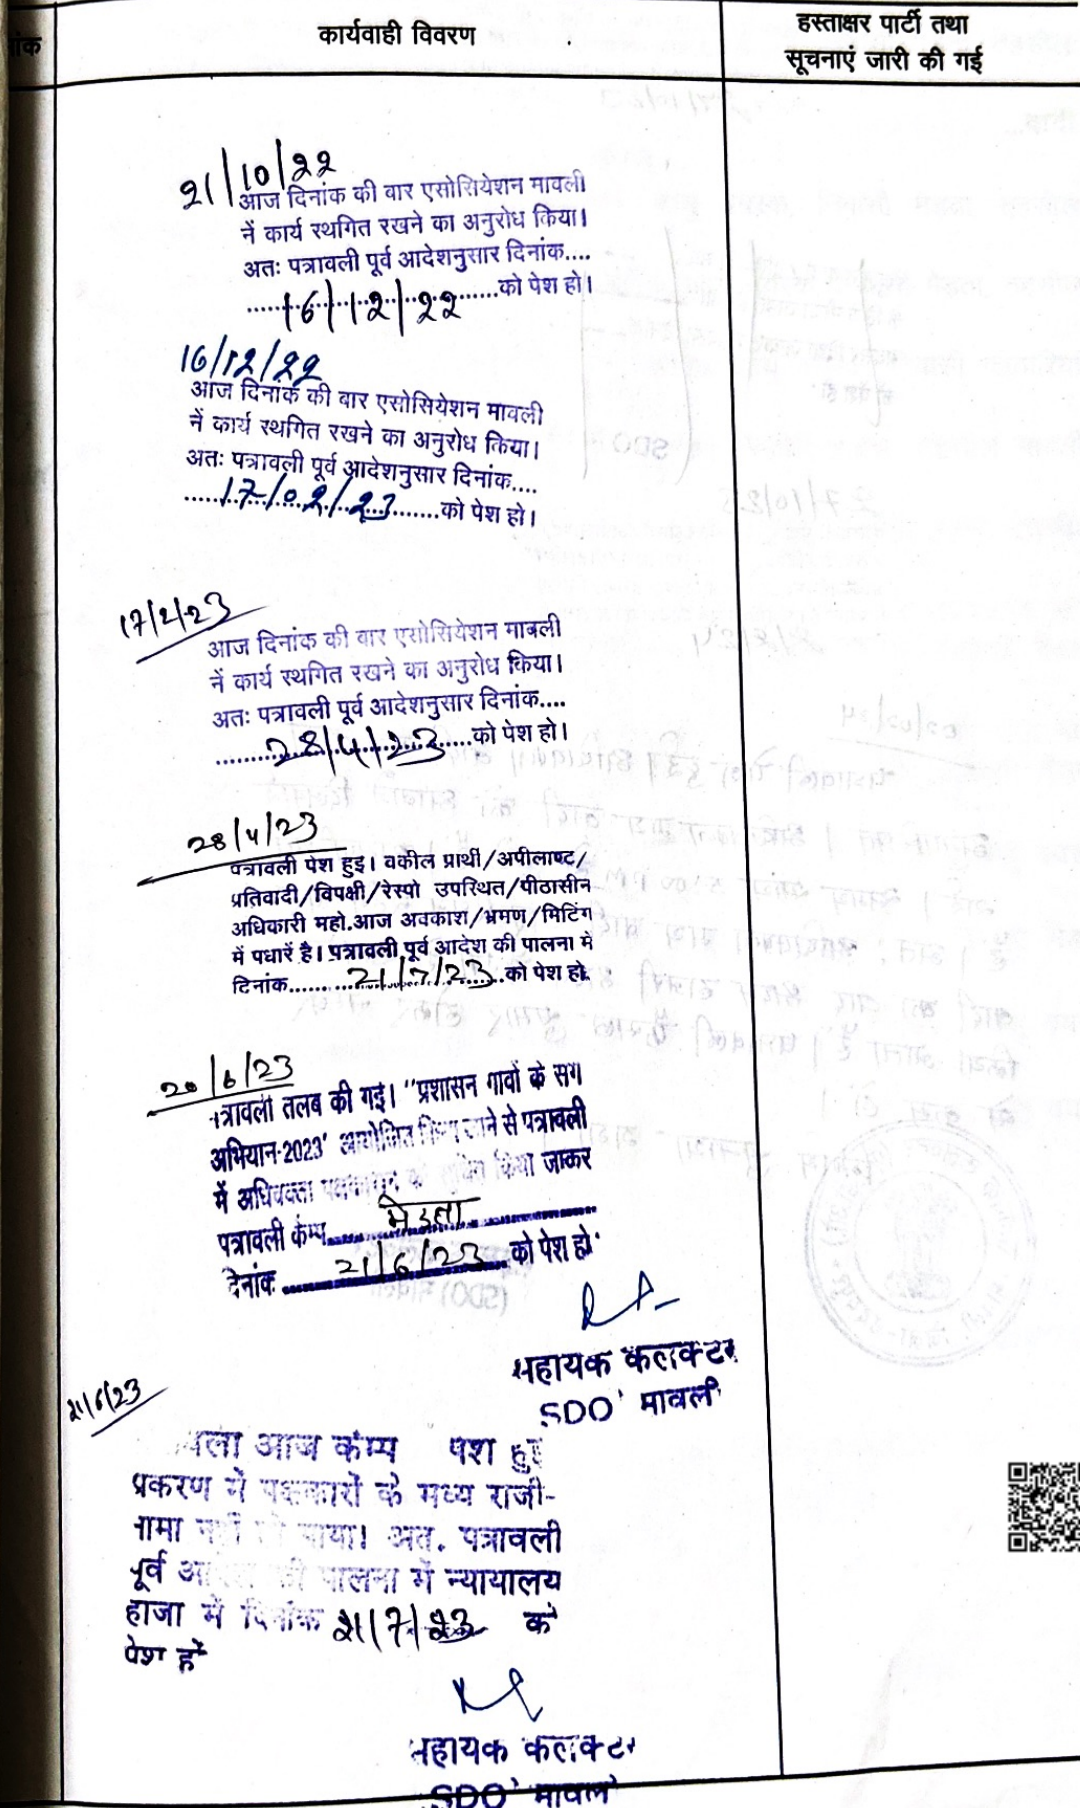 ांक
कार्यवाही विवरण
हस्ताक्षर पार्टी तथा
सूचनाएं जारी की गई
21/10/22
आज दिनांक की वार एसोसियेशन मावली
नें कार्य स्थगित रखने का अनुरोध किया।
अतः पत्रावली पूर्व आदेशनुसार दिनांक....
.....16/12/22.....को पेश हो।
16/12/22
आज दिनांक की वार एसोसियेशन मावली
नें कार्य स्थगित रखने का अनुरोध किया।
अतः पत्रावली पूर्व आदेशनुसार दिनांक....
.....17/02/23.....को पेश हो।
17/2/23
आज दिनांक की वार एसोसियेशन मावली
नें कार्य स्थगित रखने का अनुरोध किया।
अतः पत्रावली पूर्व आदेशनुसार दिनांक....
.....28/4/23.....को पेश हो।
28/4/23
पत्रावली पेश हुइ। वकील प्रार्थी/अपीलाण्ट/
प्रतिवादी/विपक्षी/रेस्पो उपस्थित/पीठासीन
अधिकारी महो.आज अवकाश/भ्रमण/मिटिंग
में पधारें है। पत्रावली पूर्व आदेश की पालना में
दिनांक.....21/7/23.....को पेश हो.
20/6/23
त्रावली तलब की गई। "प्रशासन गावों के सग
अभियान-2023' आयोजित किए जाने से पत्रावली
में अधिवक्ता को किया जाकर
पत्रावली केम्प.....
देनांक.....21/6/23.....को पेश हो
सहायक कलक्टर
SDO' मावली
21/6/23
वली आज केम्प पेश हुई
प्रकरण में पक्षकारों के मध्य राजी-
नामा नहीं हो पाया। अत. पत्रावली
पूर्व की पालना में न्यायालय
हाजा में दिनांक 21/7/23 को
पेश हो
सहायक कलक्टर
SDO' मावली